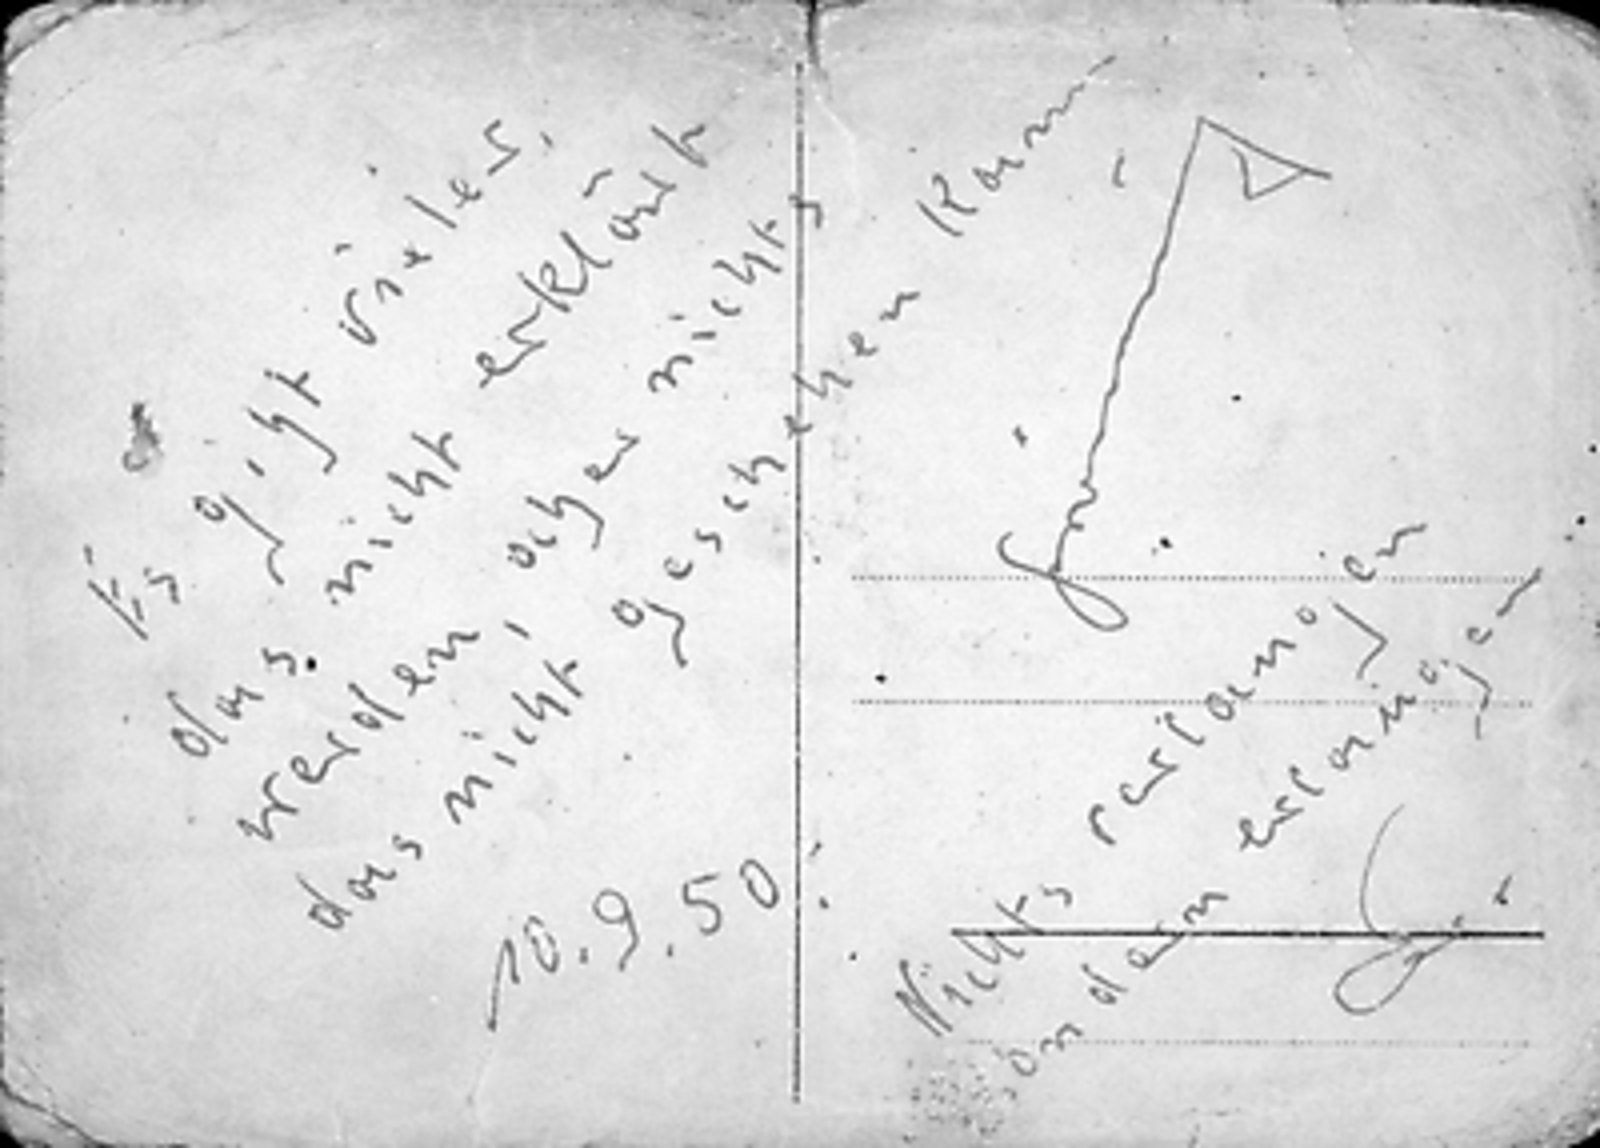 Es giht vieles,
das nicht erklärt
werden, aher nichts
das nicht geschehen kann
10.9.50.
Nichts verlangen
sondern erlangen